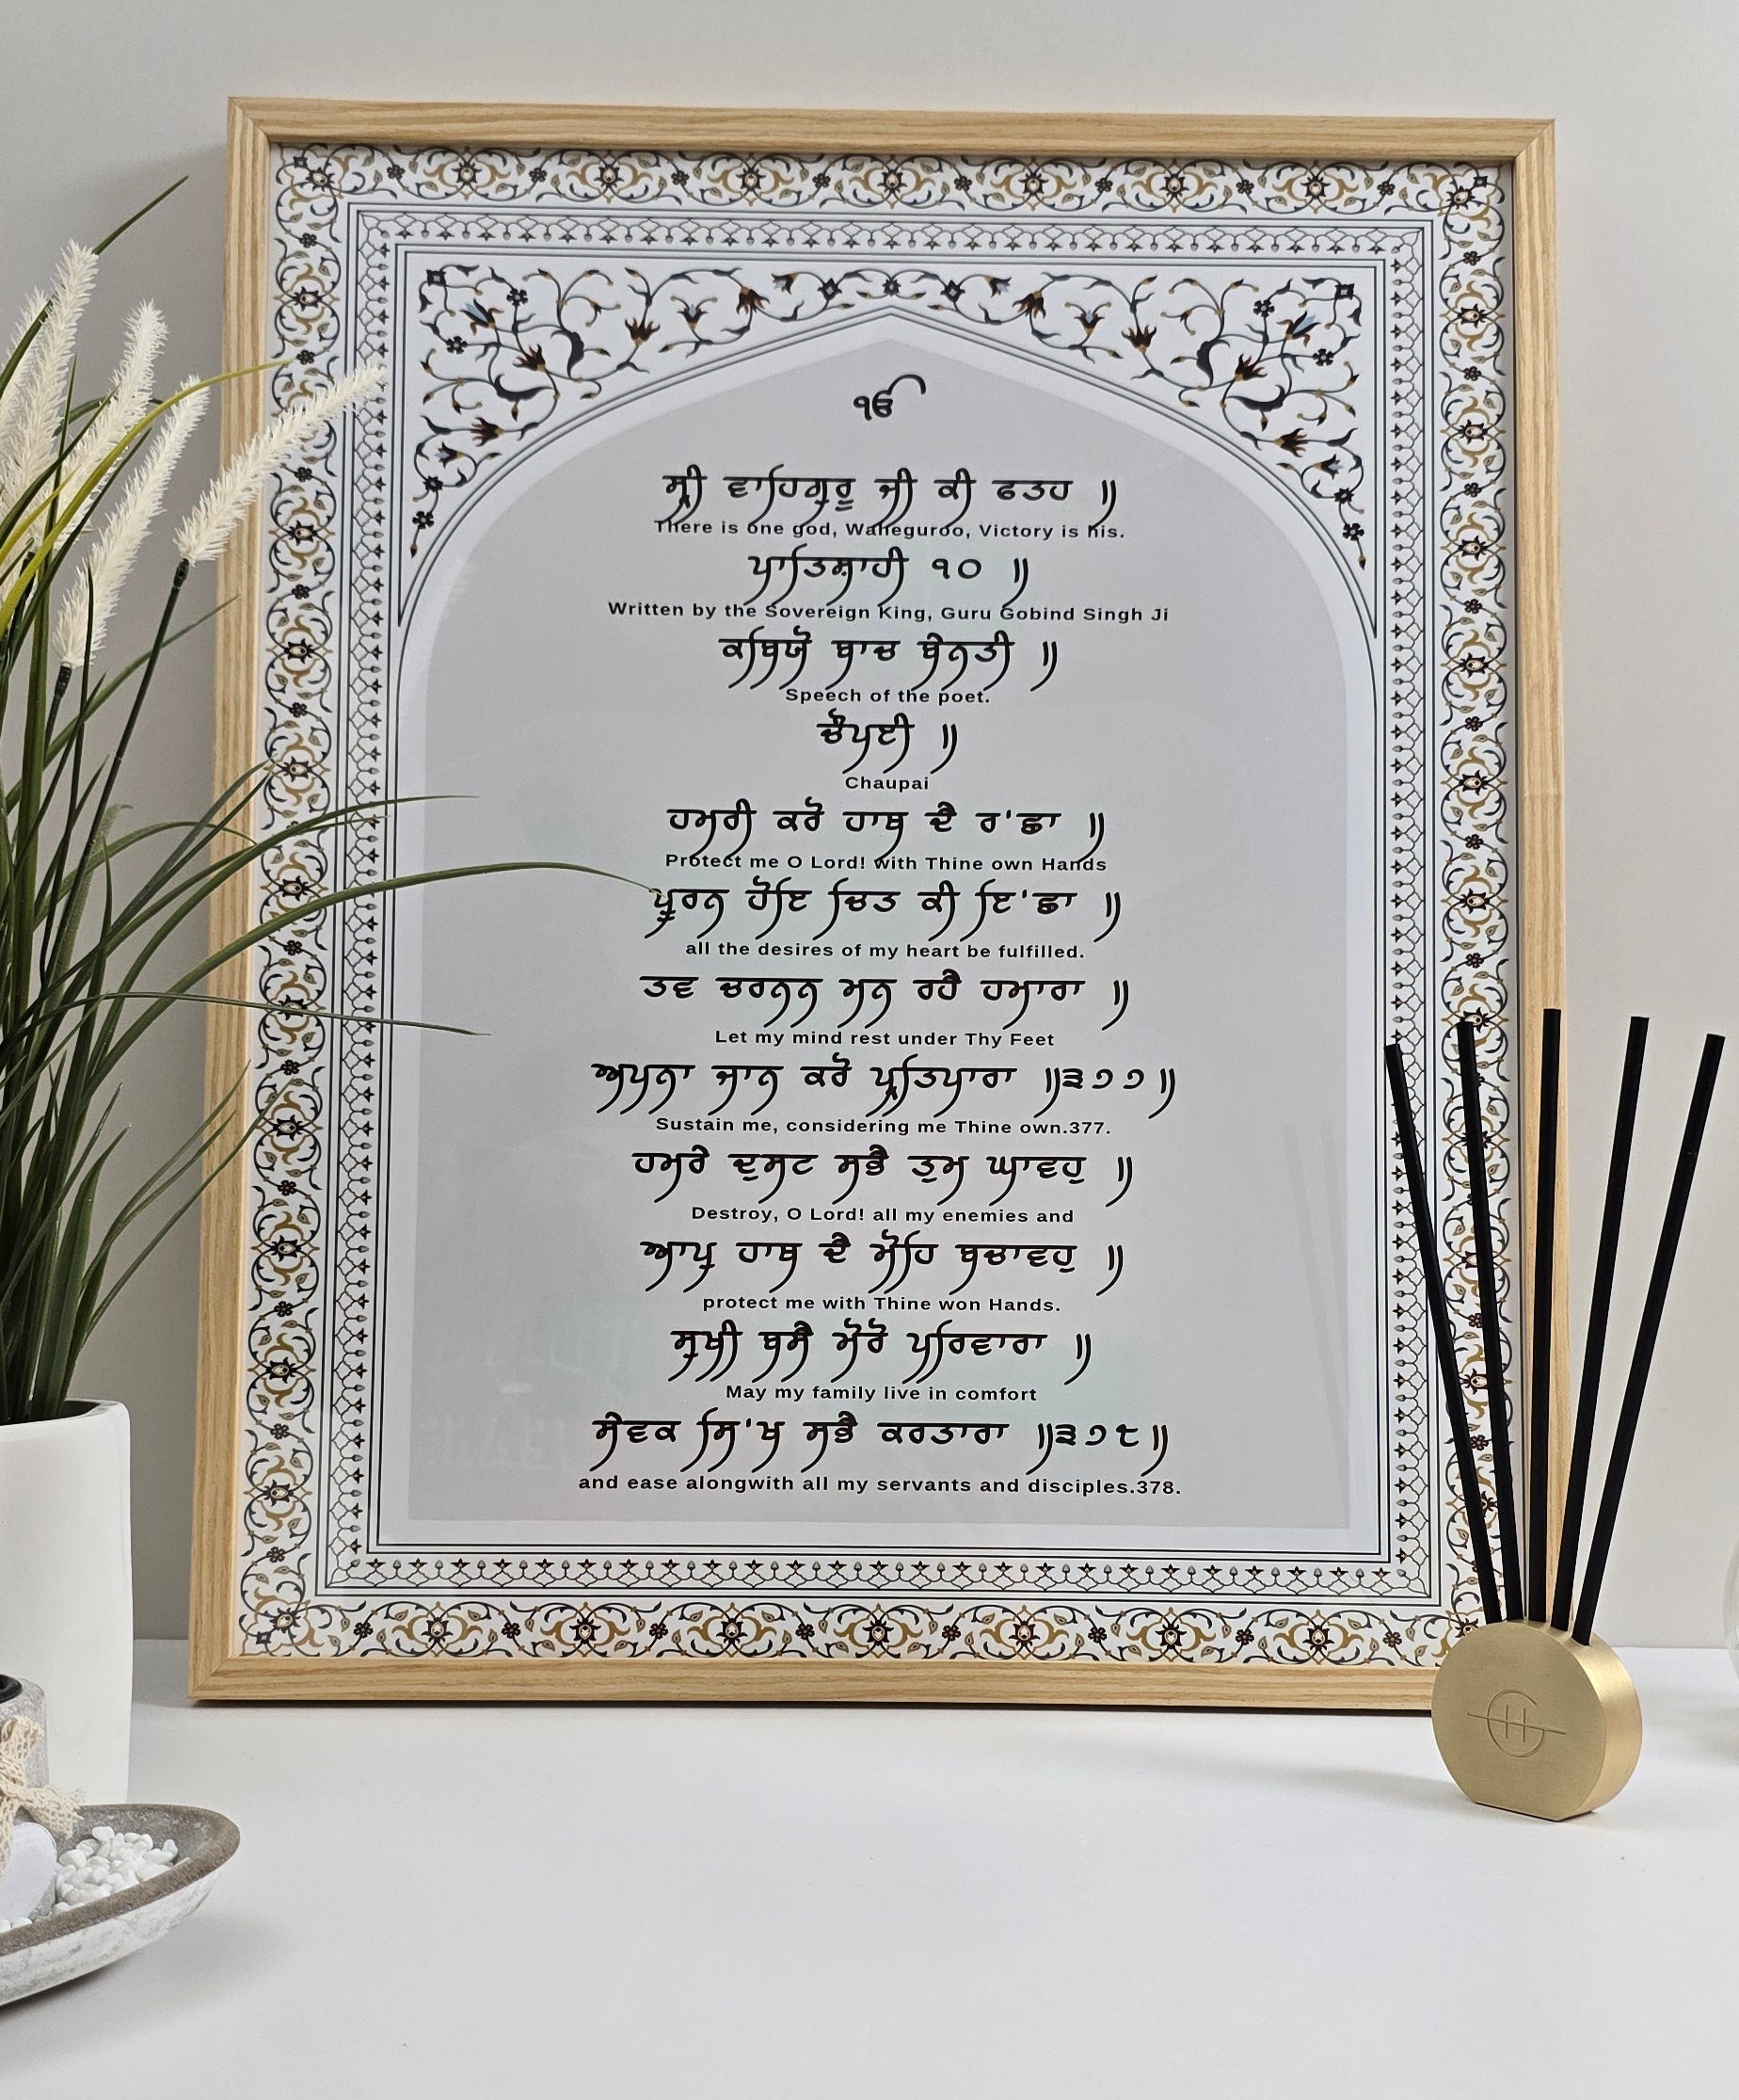 ੴ
ਸ੍ਰੀ ਵਾਹਿਗੁਰੂ ਜੀ ਕੀ ਫਤਹ ॥
There is one god, Waheguroo, Victory is his.
ਪਾਤਿਸ਼ਾਹੀ ੧੦ ॥
Written by the Sovereign King, Guru Gobind Singh Ji
ਕਬਿਯੋ ਬਾਚ ਬੇਨਤੀ ॥
Speech of the poet.
ਚੌਪਈ ॥
Chaupai
ਹਮਰੀ ਕਰੋ ਹਾਥ ਦੈ ਰ'ਛਾ ॥
Protect me O Lord! with Thine own Hands
ਪੂਰਨ ਹੋਇ ਚਿਤ ਕੀ ਇ'ਛਾ ॥
all the desires of my heart be fulfilled.
ਤਵ ਚਰਨਨ ਮਨ ਰਹੈ ਹਮਾਰਾ ॥
Let my mind rest under Thy Feet
ਅਪਨਾ ਜਾਨ ਕਰੋ ਪ੍ਰਤਿਪਾਰਾ ॥੩੭੭॥
Sustain me, considering me Thine own.377.
ਹਮਰੇ ਦੁਸਟ ਸਭੈ ਤੁਮ ਘਾਵਹੁ ॥
Destroy, O Lord! all my enemies and
ਆਪੁ ਹਾਥ ਦੈ ਮੋਹਿ ਬਚਾਵਹੁ ॥
protect me with Thine won Hands.
ਸੁਖੀ ਬਸੈ ਮੋਰੋ ਪਰਿਵਾਰਾ ॥
May my family live in comfort
ਸੇਵਕ ਸਿ'ਖ ਸਭੈ ਕਰਤਾਰਾ ॥੩੭੮॥
and ease alongwith all my servants and disciples.378.